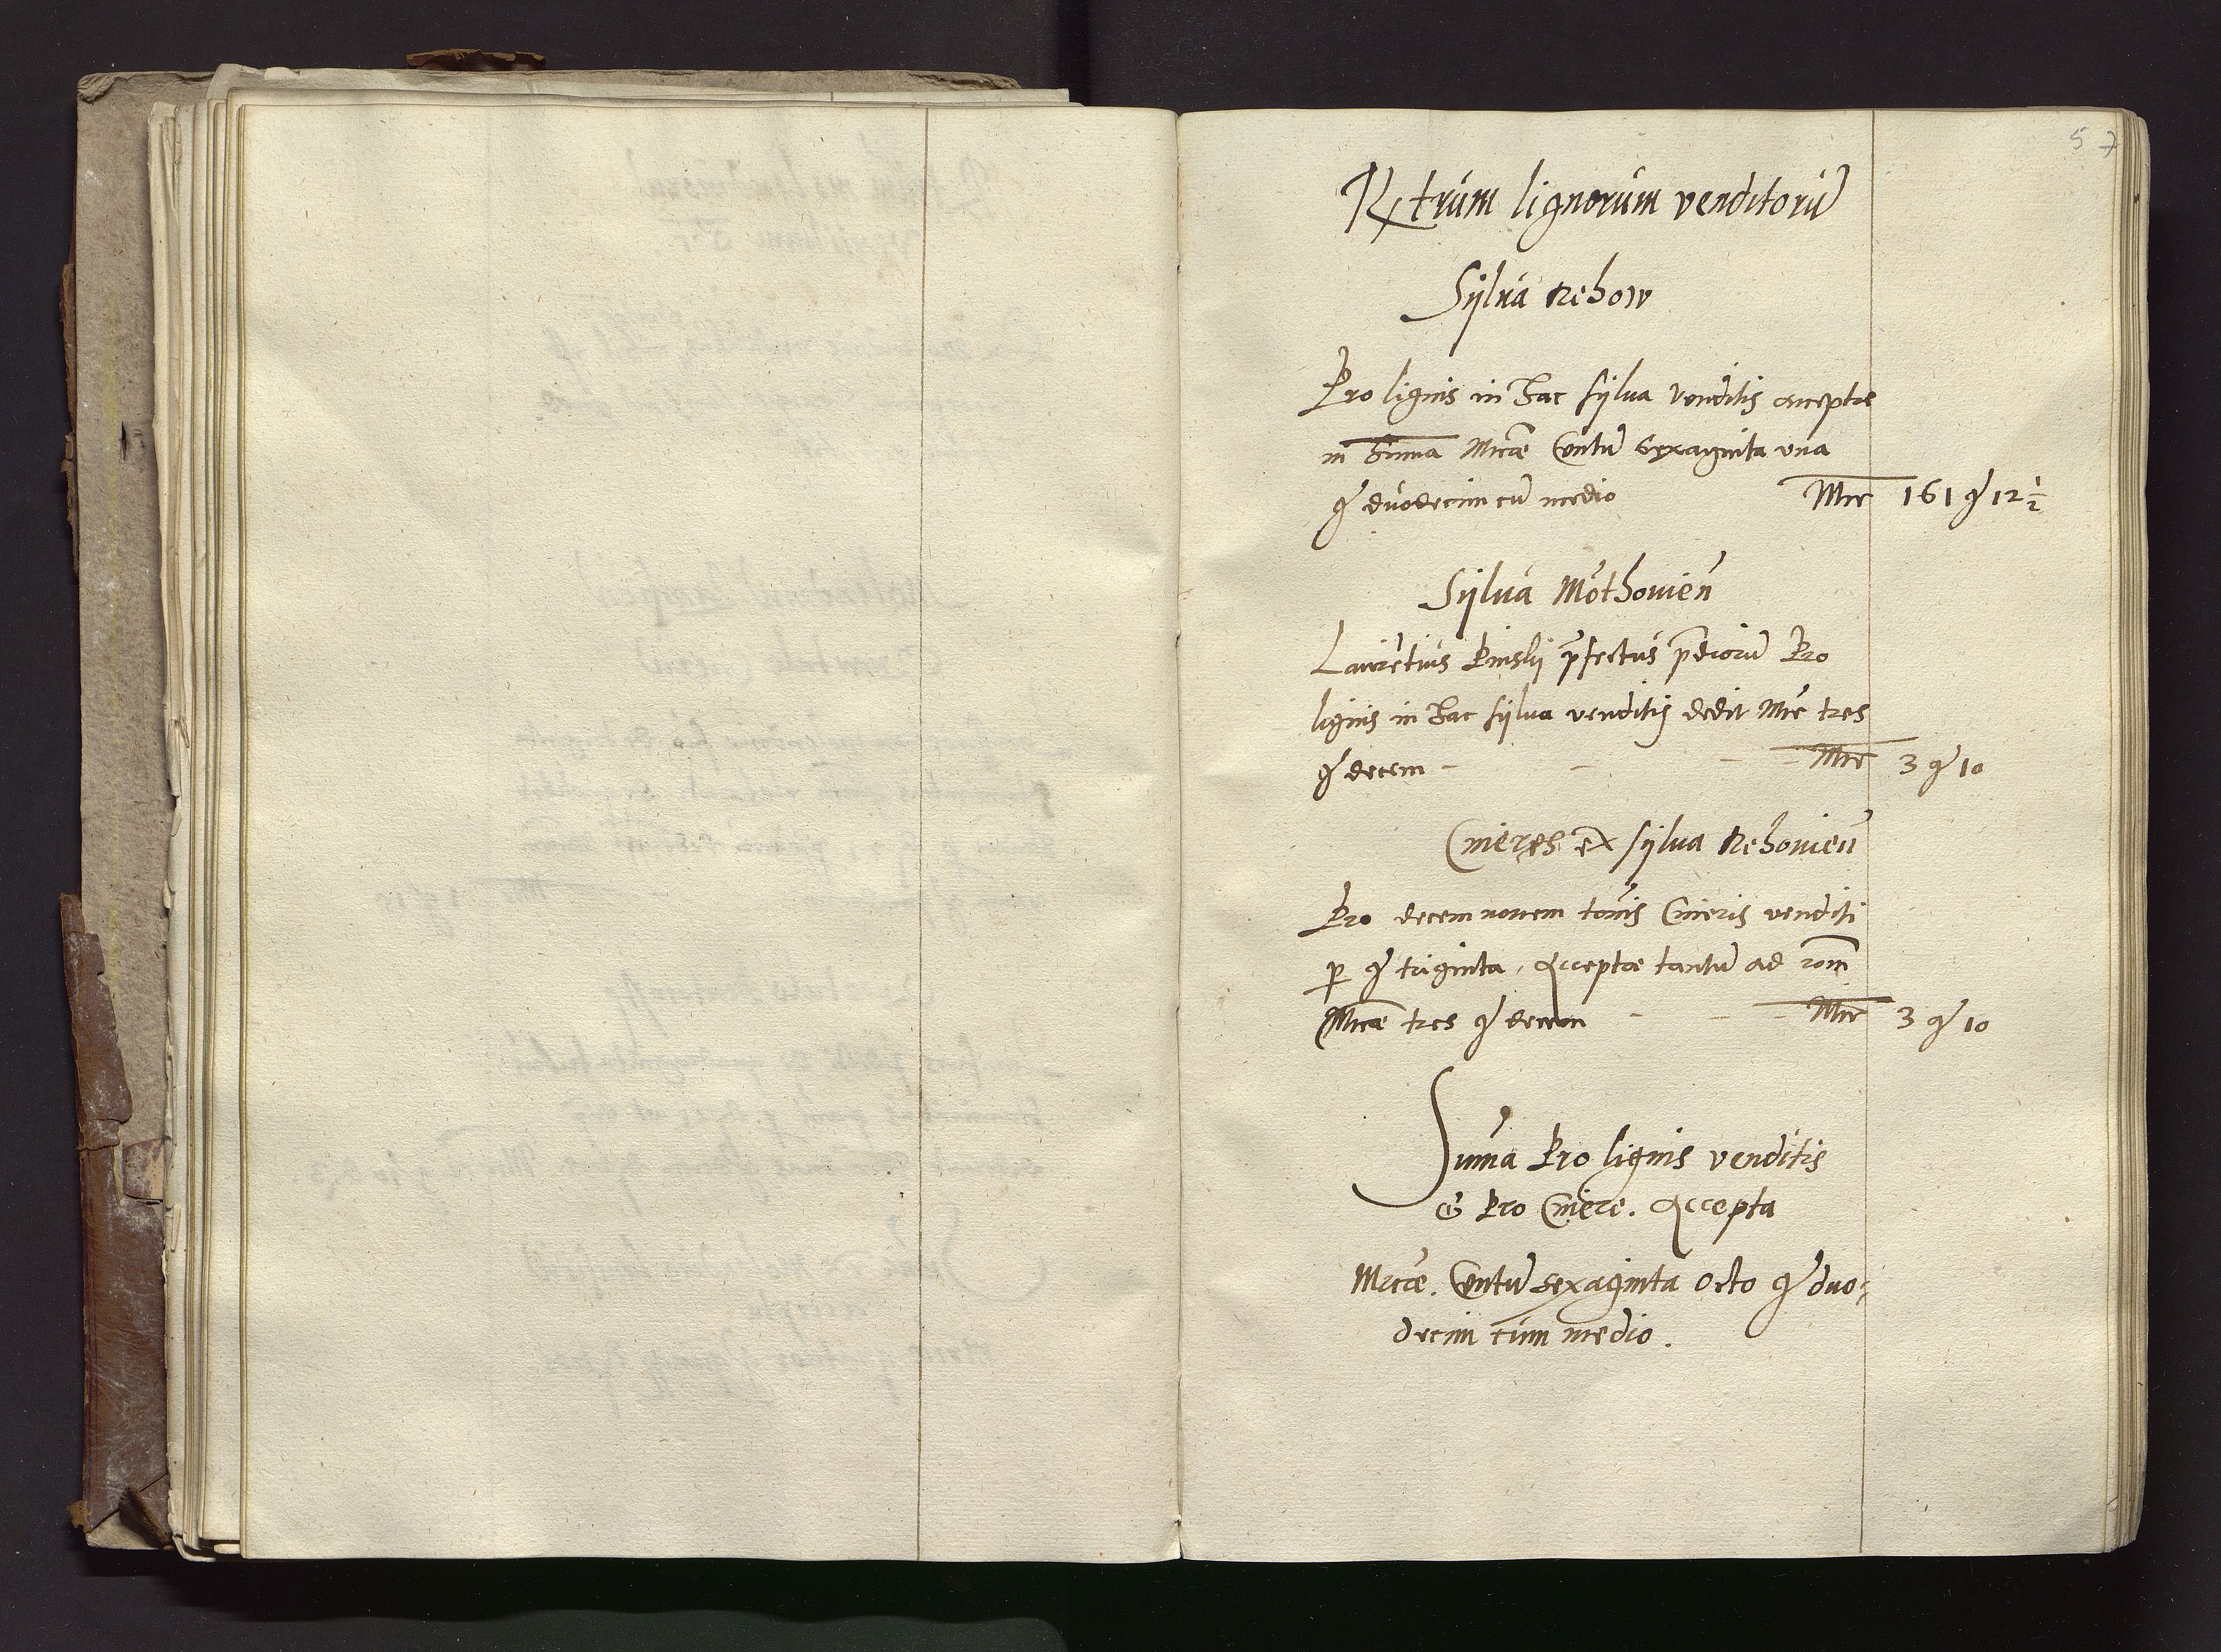 57
Rextrum lignorum venditorũ
Sylua Rehow
Pro lignis in hac sylua venditis acceptae
in Suma Mrcae Centũ Sexaginta vna
gr duodecim cũ medio Mrc 161 gr 12 1/2
Sylua Mothouieñ
Laurẽtius pr̃fectus pr̃diorũ Pro
lignis in hac sylua venditis dedit Mrc tres
gr decem - - - - Mrc 3 gr 10
Cineres ex sylua Rehouieñ
Pro decem nouem Cineris venditi
p gr triginta, acceptae tantũ ad rom̃
Mrcae tres gr decem - - - Mrc 3 gr 10
Sum̃a Pro lignis venditis
& Pro Cinere. Accepta
Mrcae. Centũ sexaginta octo gr duo-
decim cum medio.